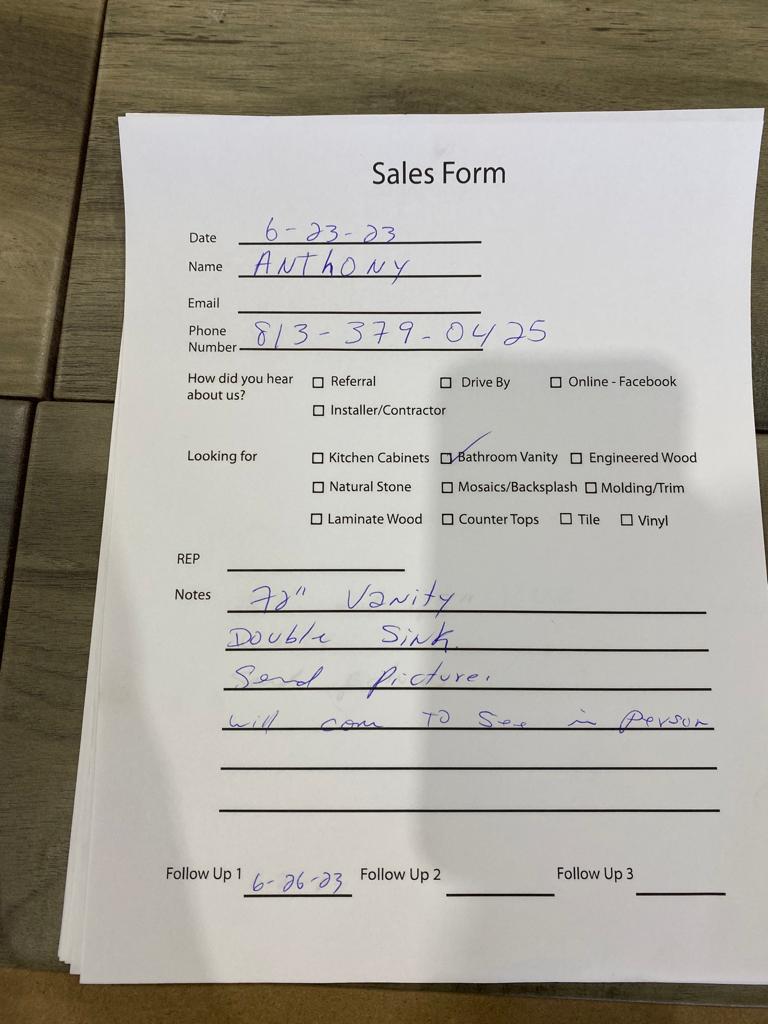 Sales Form
Date 6-23-23
Name ANThONY
Email
Phone Number 813-379-0425
How did you hear about us? ☐ Referral ☐ Drive By ☐ Online - Facebook
☐ Installer/Contractor
Looking for ☐ Kitchen Cabinets ☑ Bathroom Vanity ☐ Engineered Wood
☐ Natural Stone ☐ Mosaics/Backsplash ☐ Molding/Trim
☐ Laminate Wood ☐ Counter Tops ☐ Tile ☐ Vinyl
REP
Notes 72" Vanity
Double Sink.
Send picture.
will com TO See in person
Follow Up 1 6-26-23 Follow Up 2 Follow Up 3